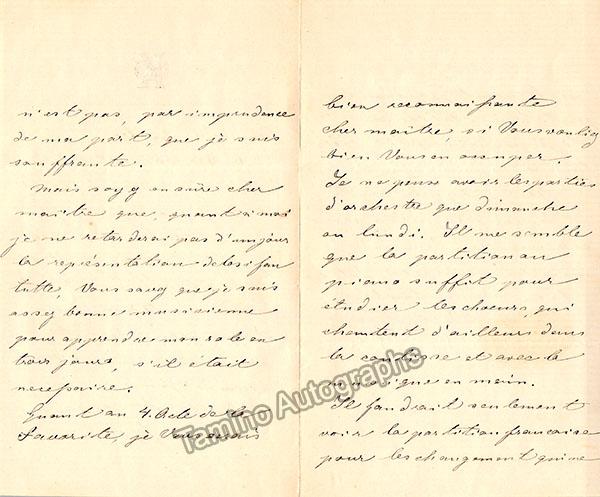 n'est pas, par imprudence
de ma part, que je suis
souffrante.
Mais soyz en sûre cher
maître que, quant à moi
je ne retarderai pas d'un jour
la représentation de Cosi fan
tutte, Vous savez que je suis
assez bonne musicienne
pour apprendre mon role en
trois jours, s'il était
necessaire.
Quant au 4. Acte de la
Favorite, je Vous serais
bien reconnaissante
cher maître, si Vous vouliez
bien Vous en occuper.
Je ne peux avoir les parties
d'orchestre que dimanche
ou lundi. Il me semble
que la partition au
piano suffit pour
étudier les choeurs, qui
chantent d'ailleurs dans
la coulisse et avec la
musique en main.
Il faudrait seulement
voir la partition francaise
pour les changement qui ne
Tamino Autographs